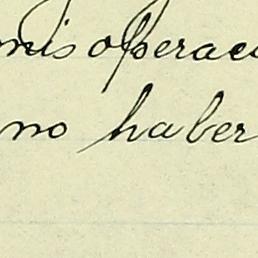 mis operaci
no haber